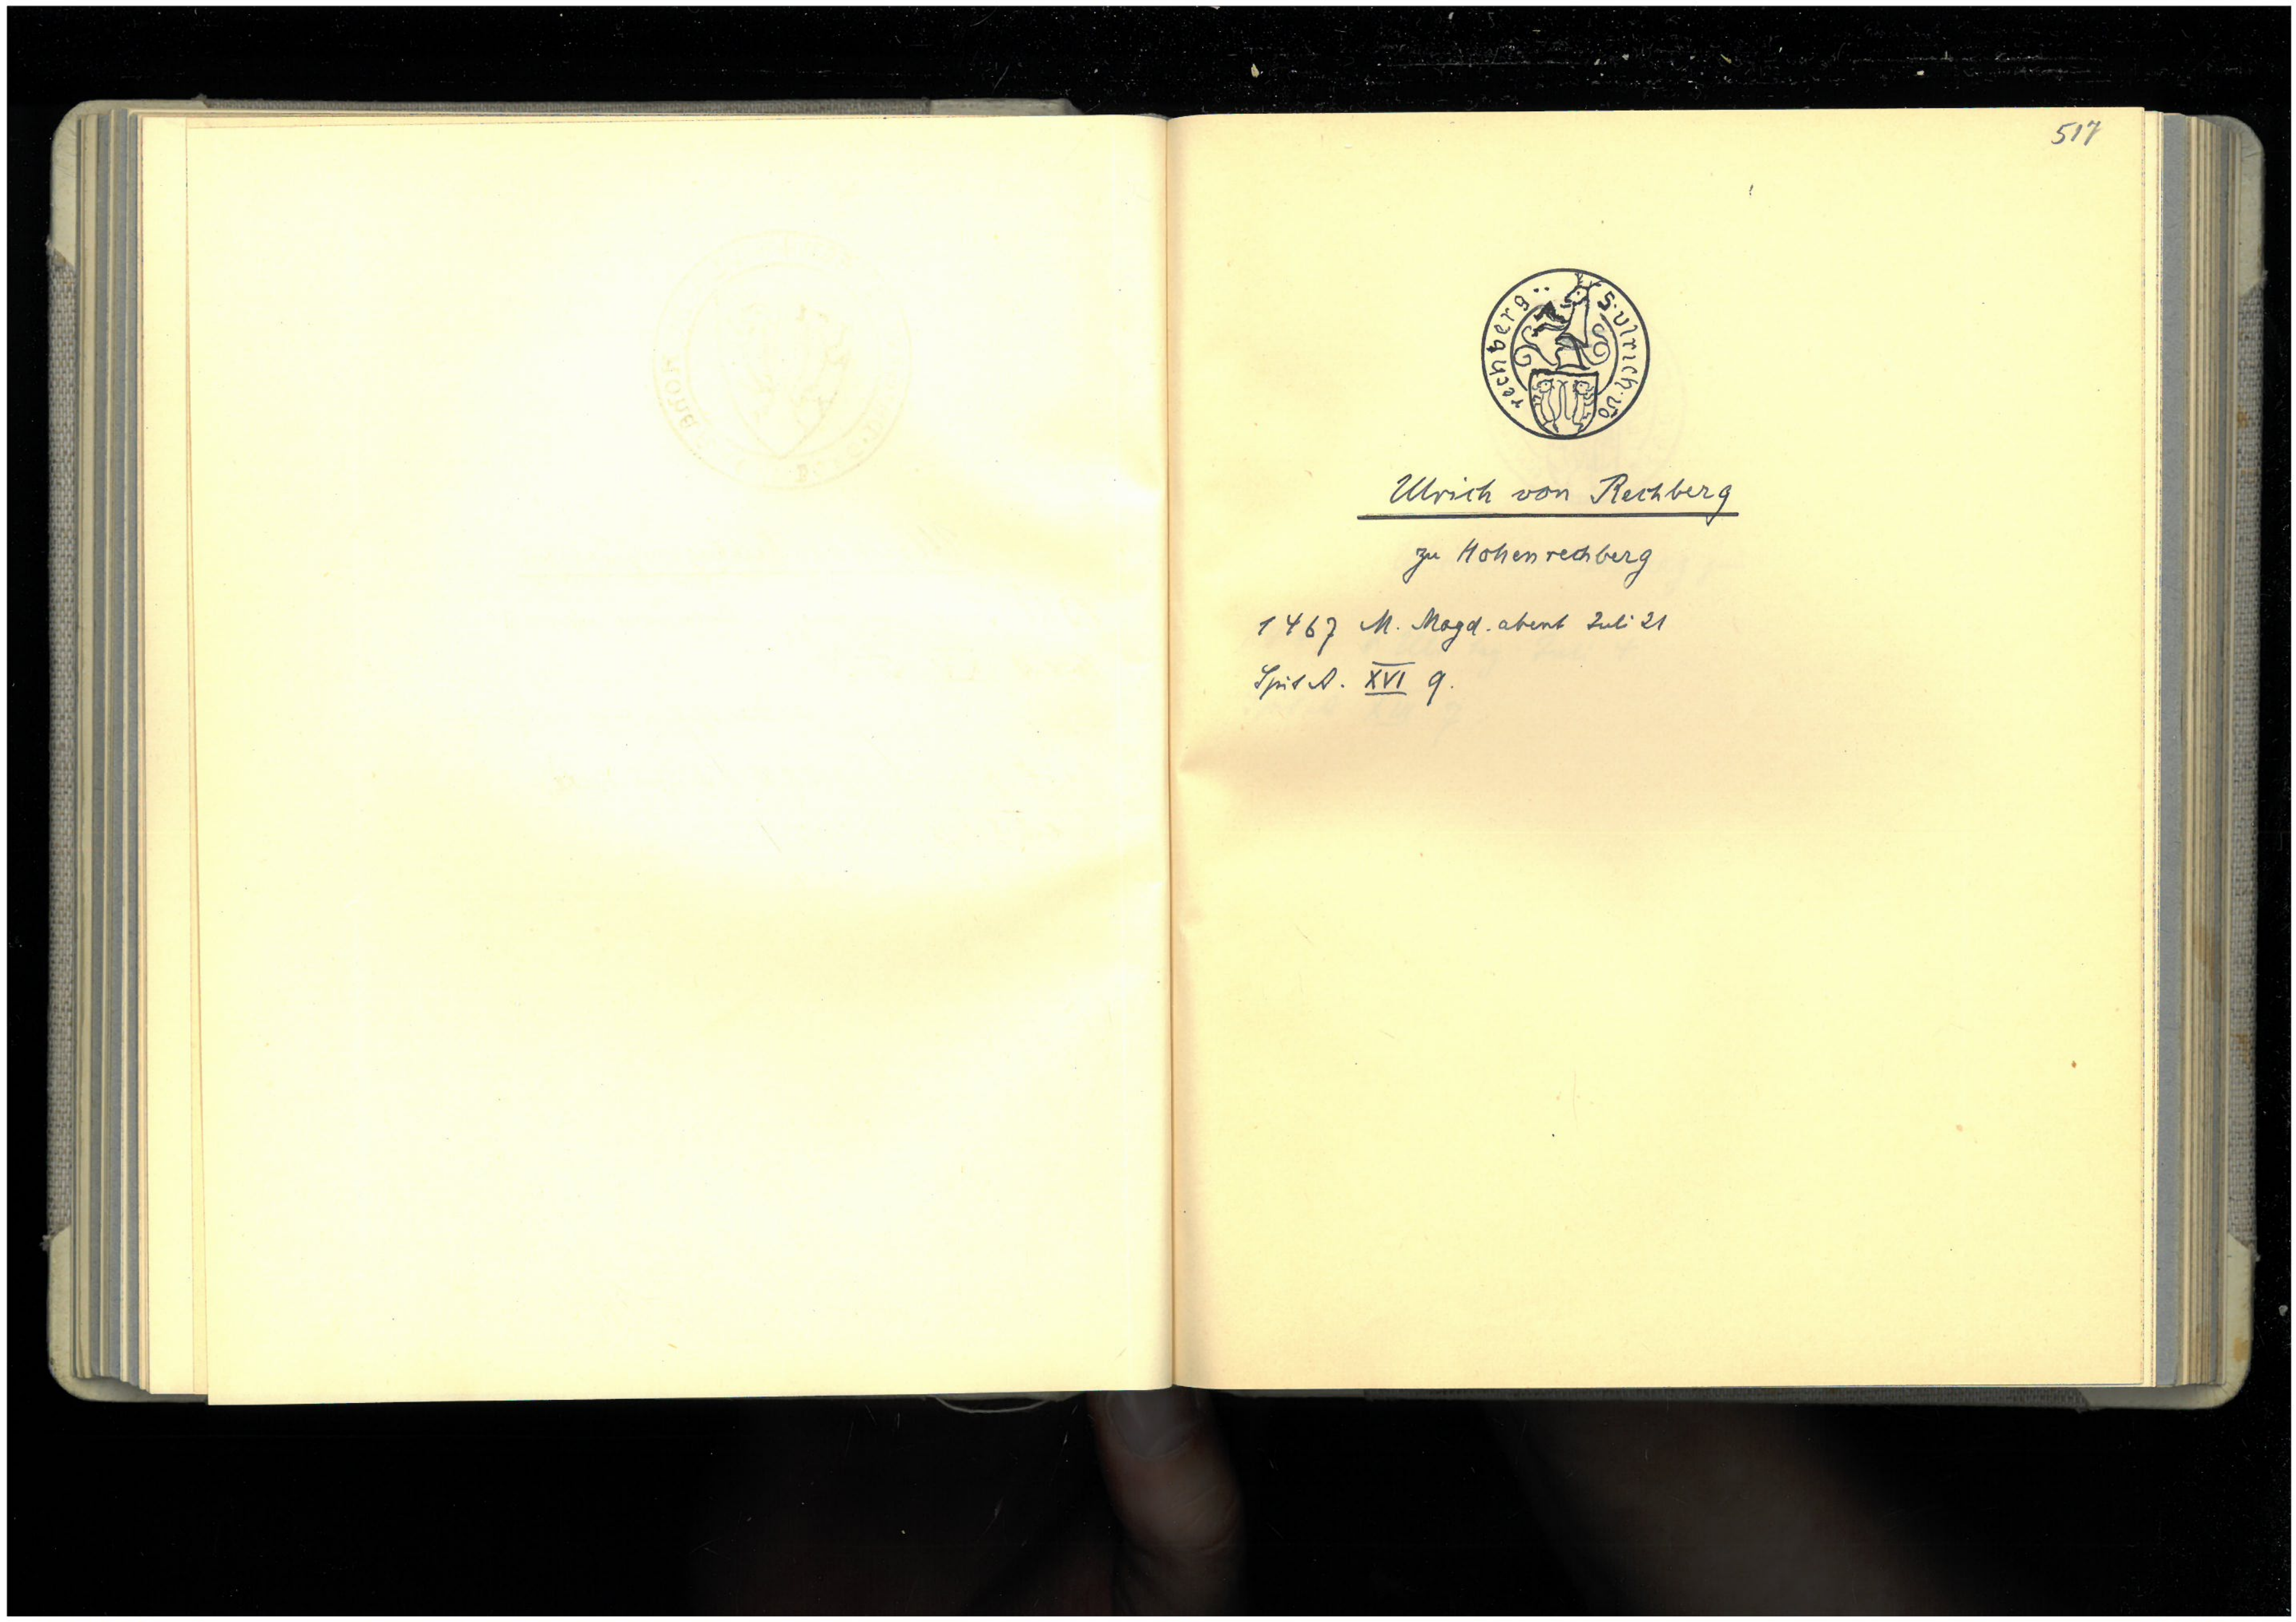 517
S·ulrich·vō rechberg
Ulrich von Rechberg
zu Hohenrechberg
1467 M. Magd. abent Juli 21
Spit A. XVI 9.